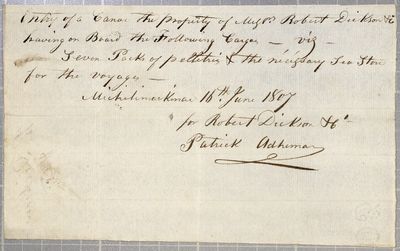 Entry of a Canoe the property of Messrs. Robert Dickson & Co
having on Board the Following Cargo — viz —
Seven Packs of peltries & the necessary Sea Store
for the voyage —
Michilimackinac 16th. June 1807
for Robert Dickson & Co.
Patrick Adhemar